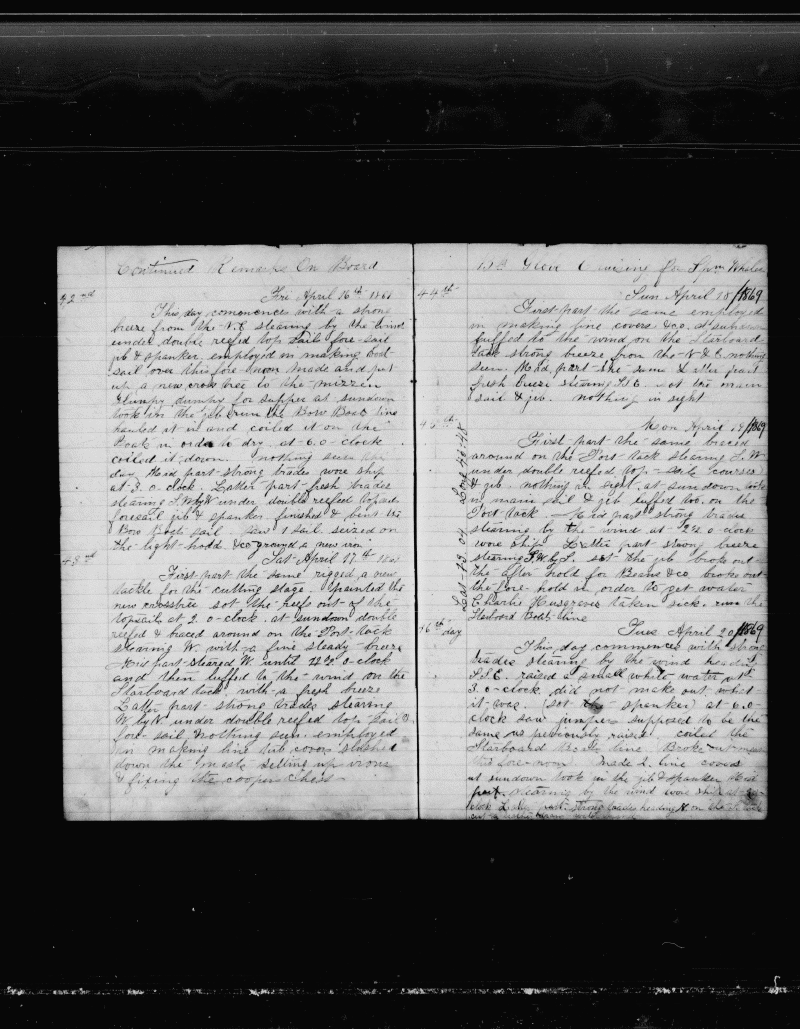 Continued Remarks On Board
42nd
Fri April 16th 1869
This day comences with a strong
breeze from the N.E. stearing by the wind
under double reefed top sails fore-sail
jib & spanker. employed in making boat
sail over this fore noon made and put
up a new cross tree to the mizzen
dumpy for supper at sundown
took in the jib run the Bow Boat line
hauled it in and coiled it on the
Boat in order to dry at 6.0-clock
coiled it down. nothing seen this
day Mid part strong trades wore ship
at 3.0-clock. Latter part fresh trades
stearing under double reefed topsails
foresail jib & spanker finished & bent the
Bow Boat sail saw 1 sail. seized on
the light hold &co ground a new iron
43rd
Sat April 17th
First part the same rigged a new
tackle for the cutting stage. painted the
new crosstree sot the reefs out of the
topsails at 2.0-clock. at sundown double
reefed & braced around on the Port tack
stearing W. with a fine steady breeze
Mid part steared W. until 12 0-clock
and then luffed to the wind on the
Starboard tack with a fresh breeze
Latter part strong trades stearing
W by N under double reefed top sails
fore sail nothing seen. employed
in making line tub covers slushed
down the masts setting up irons
& fixing the coopers Chest
Cruising for Spm Whales
44th
Sun April 18/1869
First part the same employed
in making line covers &co. at sundown
luffed to the wind on the Starboard
tack strong breeze from the N & E nothing
seen. Mid part the same Latter part
fresh breeze stearing S.E. sot the main
sail & jib. nothing in sight
45th
Mon April 19/1869
First part the same braced
around on the Port tack stearing S.W
under double reefed top-sails courses
& jib. nothing in sight. at sundown took
in main sail & jib luffed too. on the
Port tack. Mid part strong trades
stearing by the wind at 0-clock
wore Ship. Latter part strong breeze
stearing sot the jib broke out
the after hold for Beans &co broke out
the fore hold in order to get water
Charlie Musgrove taken sick. run the
Starboard Boats line
46th day
Tues April 20/1869
This day commences with strong
trades stearing by the wind heading
S.S.E. raised a small white water at
3.0-clock did not make out what
it was. (sot the spanker) at 6.0-
clock saw jumpers supposed to be the
same as previously raised. coiled the
Starboard Boats line Broke out
this fore-noon Made 2 line covers
at sundown took in the jib & spanker Mid
part stearing by the wind wore ship at
clock Latter part strong trades heading N. on the